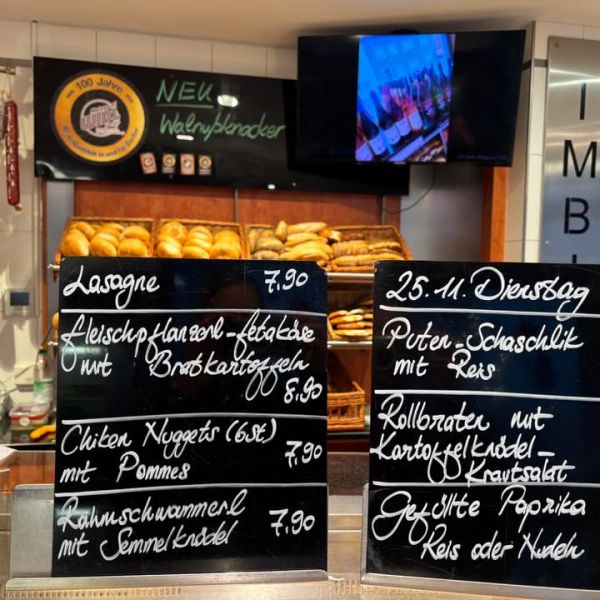 100 Jahre
NEU
Walnußknacker
I
M
B
Lasagne 7,90
Fleischpflanzerl-fetakäse
mit Bratkartoffeln
8,90
Chiken Nuggets (6St)
mit Pommes 7,90
Rahmschwammerl
mit Semmelknödel 7,90
25.11. Dienstag
Puten-Schaschlik
mit Reis
Rollbraten mit
Kartoffelknödel-
Krautsalat
Gefüllte Paprika
Reis oder Nudeln